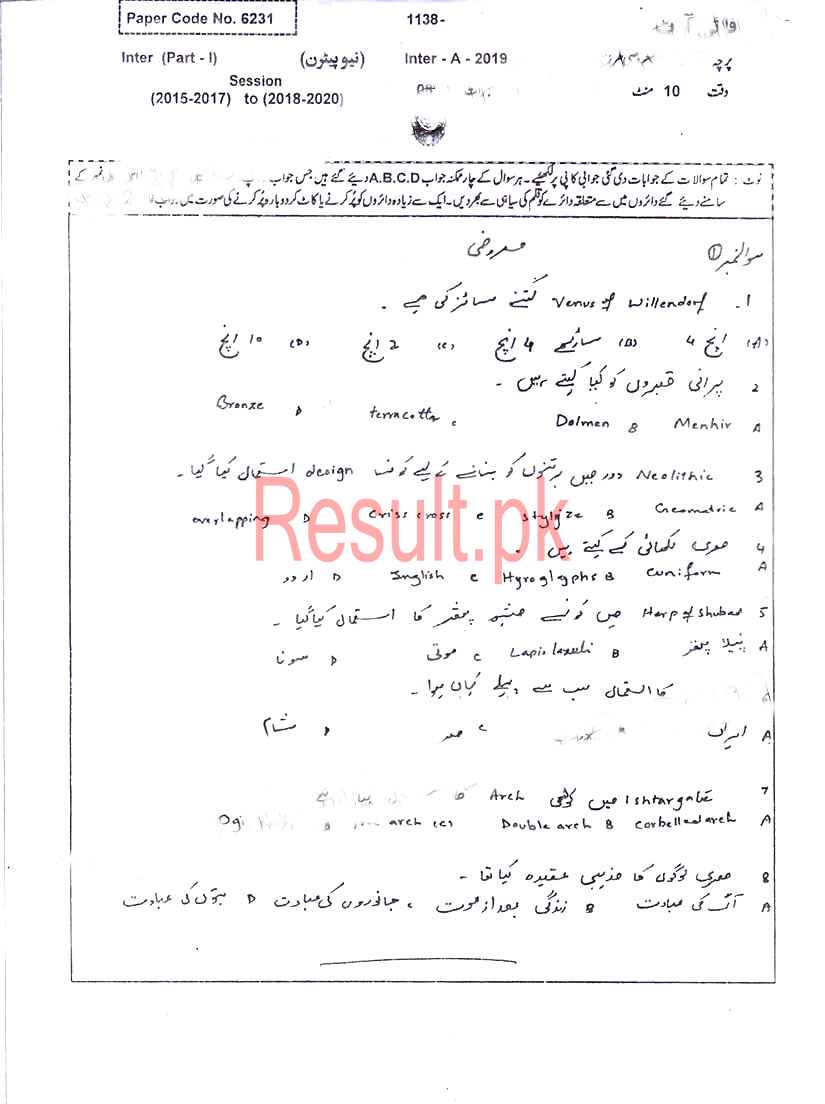 Paper Code No. 6231
1138-
Inter (Part - I) (نیو پیٹرن) Inter - A - 2019 پرچہ
Session
(2015-2017) to (2018-2020)
وقت 10 منٹ
نوٹ : تمام سوالات کے جوابات دی گئی جوابی کاپی پر لکھیے۔ ہر سوال کے چار ممکنہ جواب A.B.C.D دیئے گئے ہیں جس جواب
سامنے دیئے گئے دائروں میں سے متعلقہ دائرے کو قلم کی سیاہی سے بھر دیں۔ ایک سے زیادہ دائروں کو پُر کرنے یا کاٹ کر دوبارہ پُر کرنے کی صورت میں
سوال نمبر ① معروضی
1. Venus of Willendorf کتنے سائز کی ہے ۔
(A) 4 انچ (B) ساڑھے 4 انچ (C) 2 انچ (D) 10 انچ
2 پرانی قبروں کو کیا کہتے ہیں ۔
A Menhir B Dolmen C terracotta D Bronze
3 Neolithic دور میں برتنوں کو بنانے کے لیے کونسا design استعمال کیا گیا ۔
A Geometric B stylize C Criss cross D overlapping
4 مصری لکھائی کسے کہتے ہیں ۔
A Cuniform B Hyroglyphs C English D اردو
5 Harp of Shubad میں کونسے قیمتی پتھر کا استعمال کیا گیا ۔
A نیلا پتھر B Lapis lazuli C موتی D سونا
کا استعمال سب سے پہلے کہاں ہوا ۔
A ایران C مصر D شام
7 Ishtargate میں کونسی Arch کا
A Corbelled arch B Double arch (C) arch Ogi
8 مصری لوگوں کا مذہبی عقیدہ کیا تھا ۔
A آگ کی عبادت B زندگی بعد از موت C جانوروں کی عبادت D بتوں کی عبادت
Result.pk